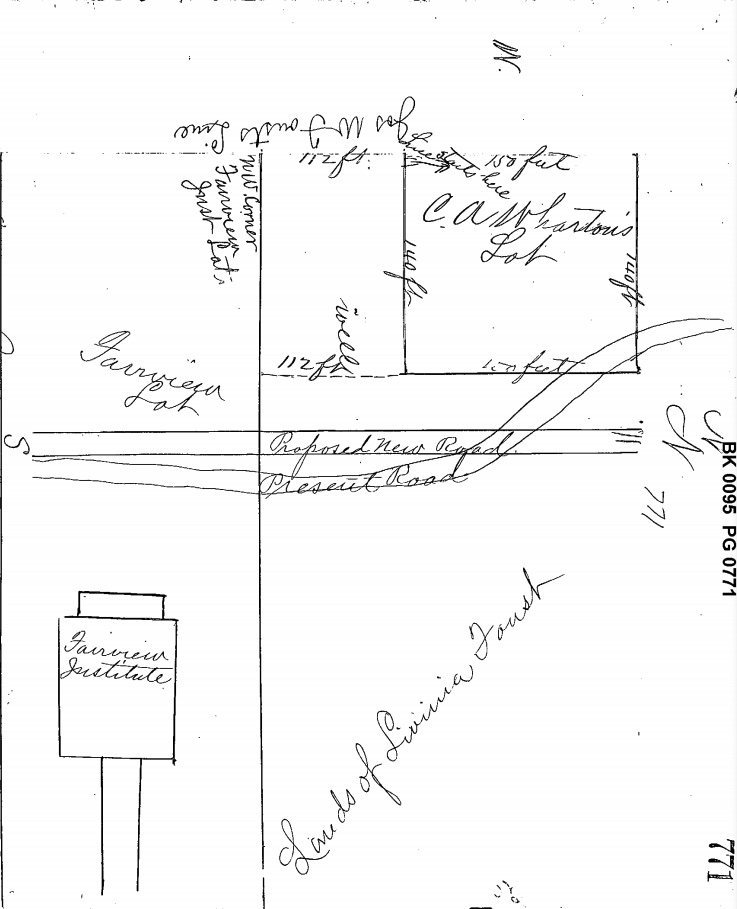 W.
Jos W Fousts Line
112 ft.
150 feet
N.W. Corner
Fairview
Inst. Lot
C. A. Whartons
Lot
140 ft
140 ft
well
Fairview
Lot
112 ft
150 feet
S
Proposed New Road.
N.
N
Present Road
771
BK 0095 PG 0771
Fairview
Institute
Lands of Livinia Foust
771